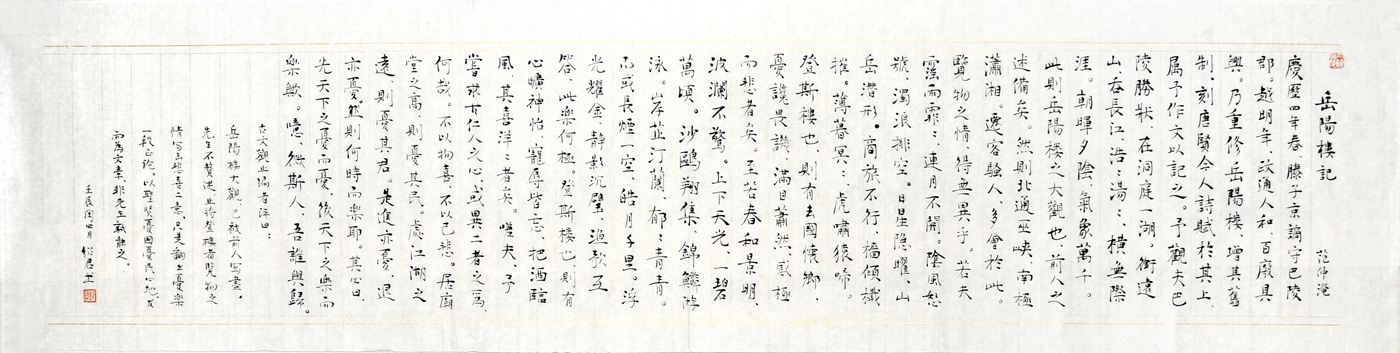 岳陽樓記
范仲淹
慶歷四年春滕子京謫守巴陵
郡。越明年。政通人和。百廢具
興。乃重修岳陽樓。增其舊
制。刻唐賢今人詩賦於其上。
属予作文以記之。予觀夫巴
陵勝狀。在洞庭一湖。銜遠
山。吞長江。浩〻湯〻。橫無際
涯。朝暉夕陰。氣象萬千。
此則岳陽樓之大觀也。前人之
述備矣。然則北通巫峽。南極
瀟湘。遷客騷人。多會於此。
覽物之情。得無異乎。若夫
霪雨霏〻。連月不開。陰風怒
號。濁浪排空。日星隐曜。山
岳潛形。商旅不行。檣傾檝
摧。薄暮冥〻。虎嘯猿啼。
登斯樓也。則有去國懷鄉、
憂讒畏譏、滿目蕭然、感極
而悲者矣。至若春和景明、
波瀾不驚。上下天光、一碧
萬頃。沙鷗翔集、錦鱗游
泳。岸芷汀蘭、郁〻青青。
而或長煙一空、皓月千里。浮
光耀金、静影沉璧、漁歌互
答、此樂何極。登斯樓也則有
心曠神怡、寵辱皆忘、把酒臨
風、其喜洋〻者矣。嗟夫、予
嘗求古仁人之心、或異二者之爲、
何哉。不以物喜、不以己悲。居廟
堂之高、則憂其民。處江湖之
遠、則憂其君。是進亦憂、退
亦憂。然則何時而樂耶。其必曰
先天下之憂而憂、後天下之樂而
樂歟。噫、微斯人、吾誰與歸。
古文觀止編者評曰：
岳陽樓大觀、已被前人寫盡。
先生不贅述、止將登樓者覽物之
情寫出悲喜二意、只是翻出憂樂
一段正論。以聖賢憂國憂民心地、發
而爲文章、非先生孰能之。
壬辰閏四月